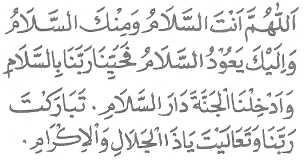 اَللّٰهُمَّ اَنْتَ السَّلَامُ وَمِنْكَ السَّلَامُ
وَاِلَيْكَ يَعُوْدُ السَّلَامُ فَحَيِّنَا رَبَّنَا بِالسَّلَامِ
وَاَدْخِلْنَا الْجَنَّةَ دَارَ السَّلَامِ. تَبَارَكْتَ
رَبَّنَا وَتَعَالَيْتَ يَاذَا الْجَلَالِ وَالْاِكْرَامِ.